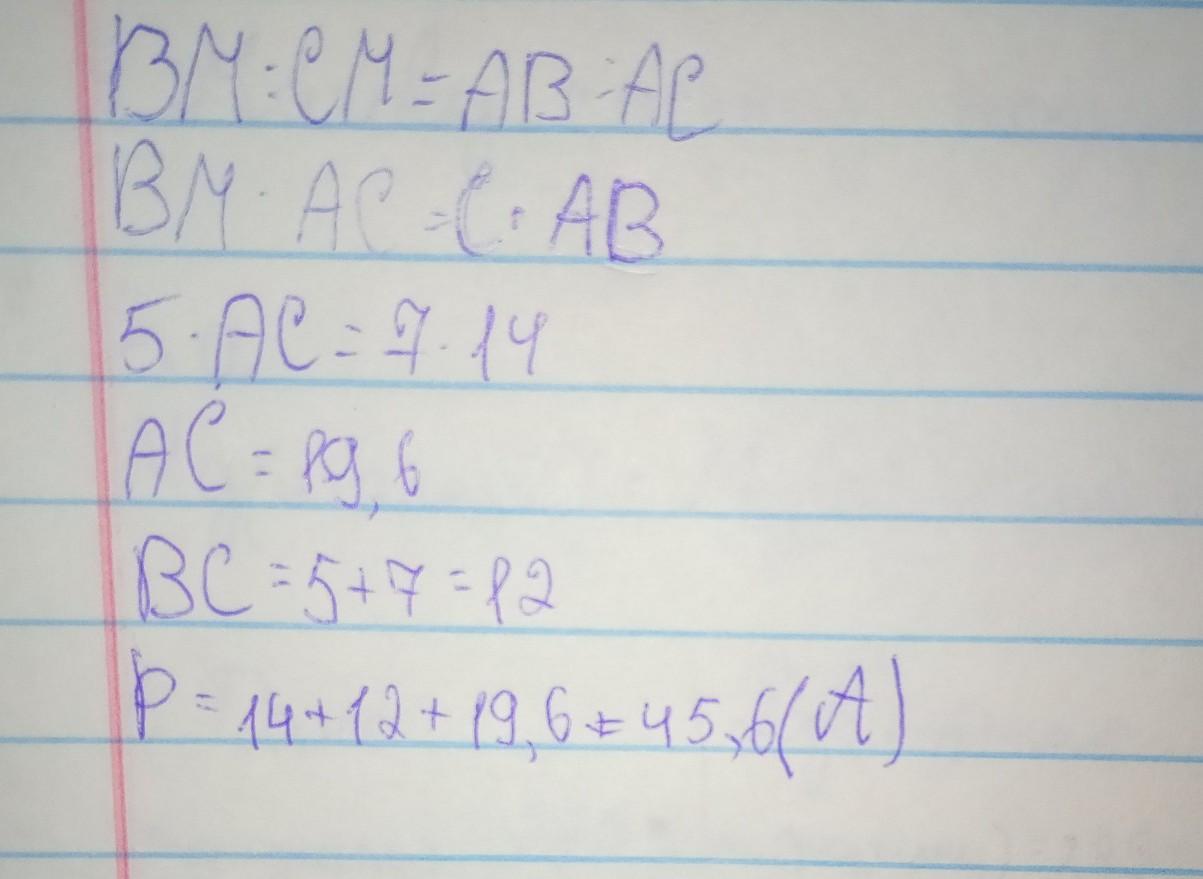 BM:CM=AB:AC
BM·AC=C·AB
5·AC=7·14
AC=19,6
BC=5+7=12
P=14+12+19,6=45,6(A)